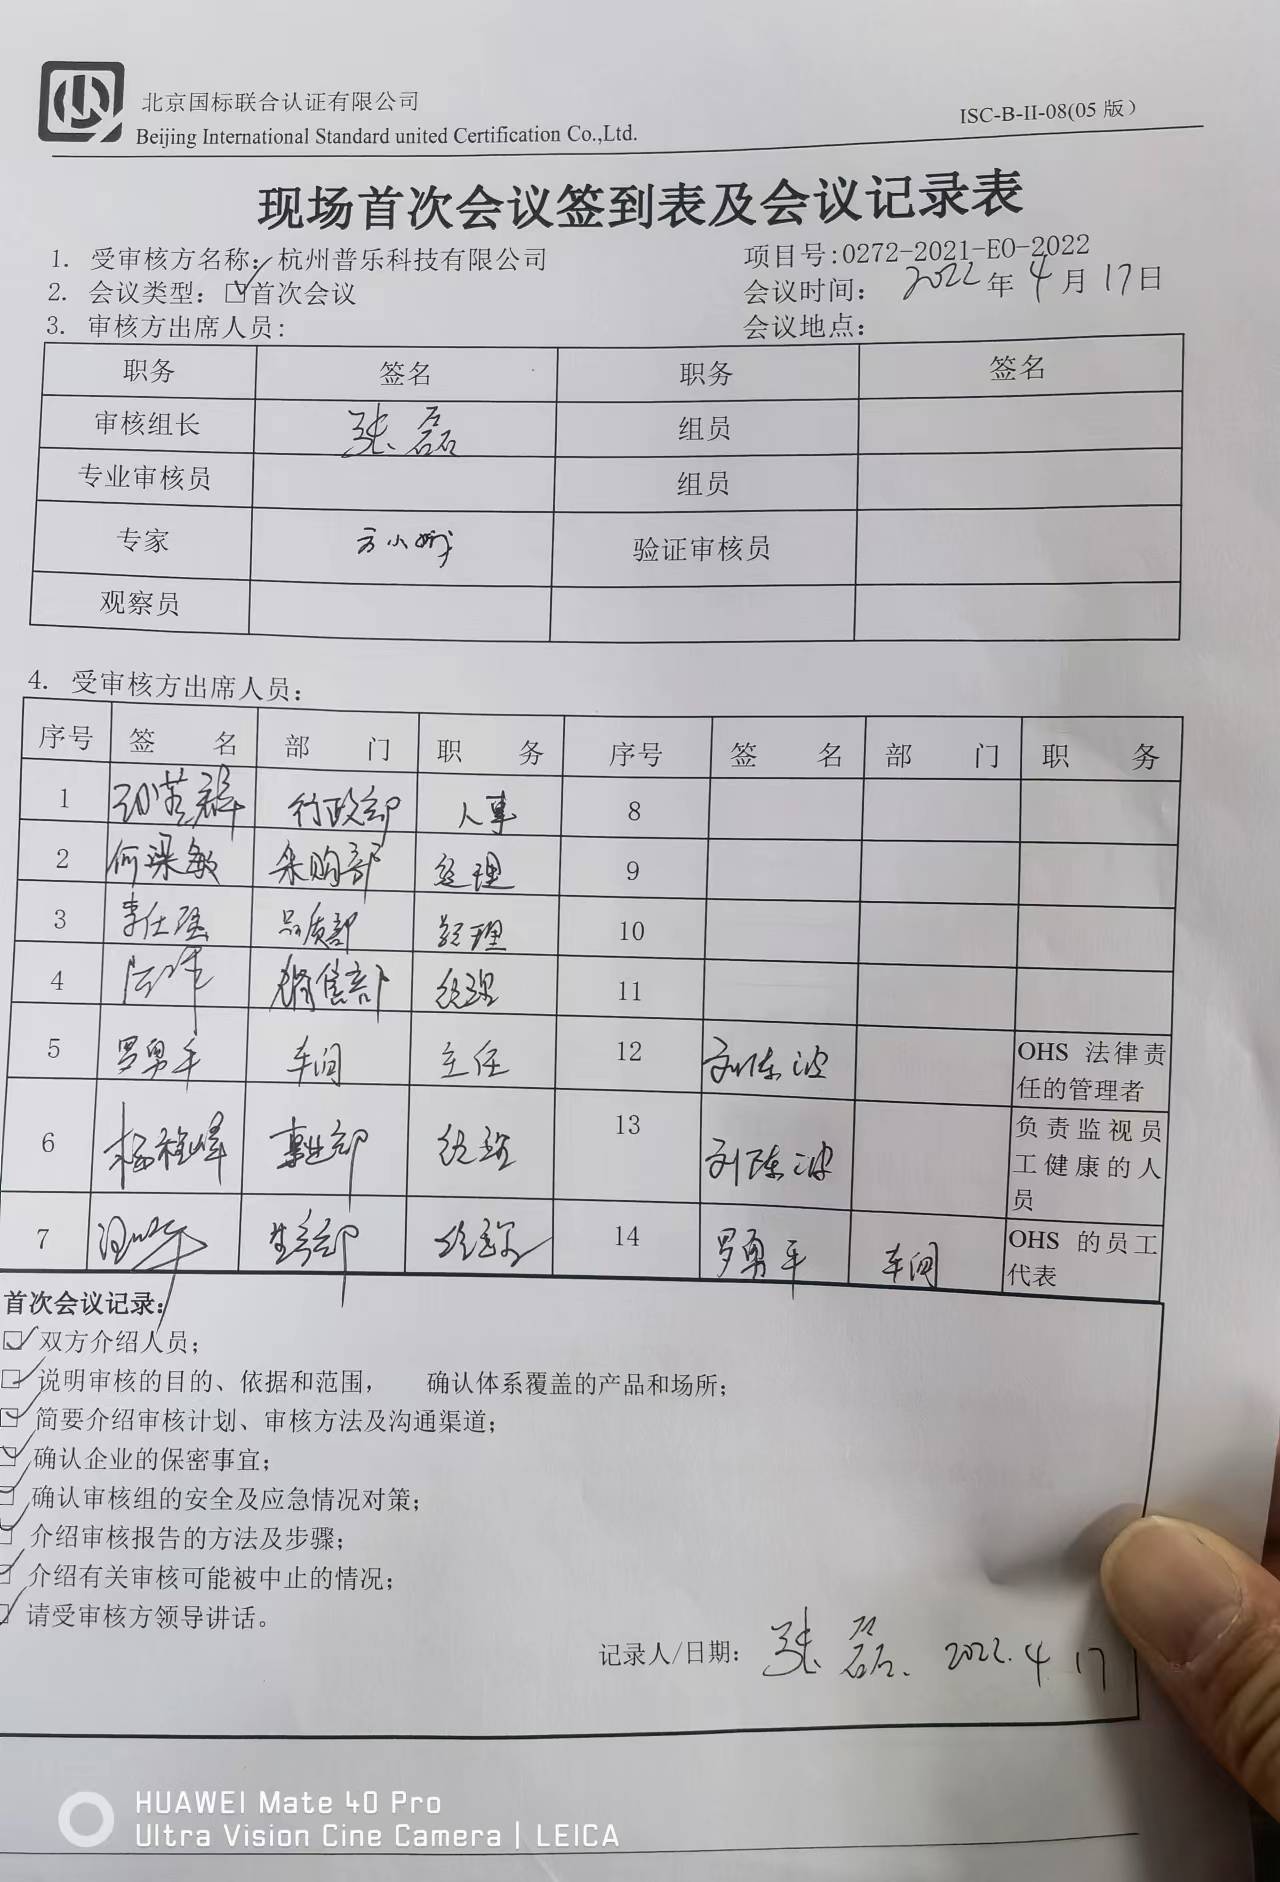 北京国标联合认证有限公司
Beijing International Standard united Certification Co.,Ltd.
ISC-B-II-08(05 版)
现场首次会议签到表及会议记录表
1. 受审核方名称：杭州普乐科技有限公司
项目号:0272-2021-EO-2022
2. 会议类型：☑首次会议
会议时间： 2022年4月17日
3. 审核方出席人员:
会议地点：
职务 签名 职务 签名
审核组长 张磊 组员
专业审核员 组员
专家 方小娥 验证审核员
观察员
4. 受审核方出席人员：
序号 签名 部门 职务 序号 签名 部门 职务
1 行政部 人事 8
2 何梁敏 采购部 经理 9
3 李仕强 品质部 经理 10
4 销售部 经理 11
5 罗勇平 车间 主任 12 刘陈波 OHS 法律责任的管理者
6 杨桂峰 事业部 经理 13 刘陈波 负责监视员工健康的人员
7 生产部 经理 14 罗勇平 车间 OHS 的员工代表
首次会议记录：
☑ 双方介绍人员；
☑ 说明审核的目的、依据和范围， 确认体系覆盖的产品和场所；
☑ 简要介绍审核计划、审核方法及沟通渠道；
☑ 确认企业的保密事宜；
☑ 确认审核组的安全及应急情况对策；
☑ 介绍审核报告的方法及步骤；
☑ 介绍有关审核可能被中止的情况；
☑ 请受审核方领导讲话。
记录人/日期： 张磊. 2022.4 17
HUAWEI Mate 40 Pro
Ultra Vision Cine Camera | LEICA